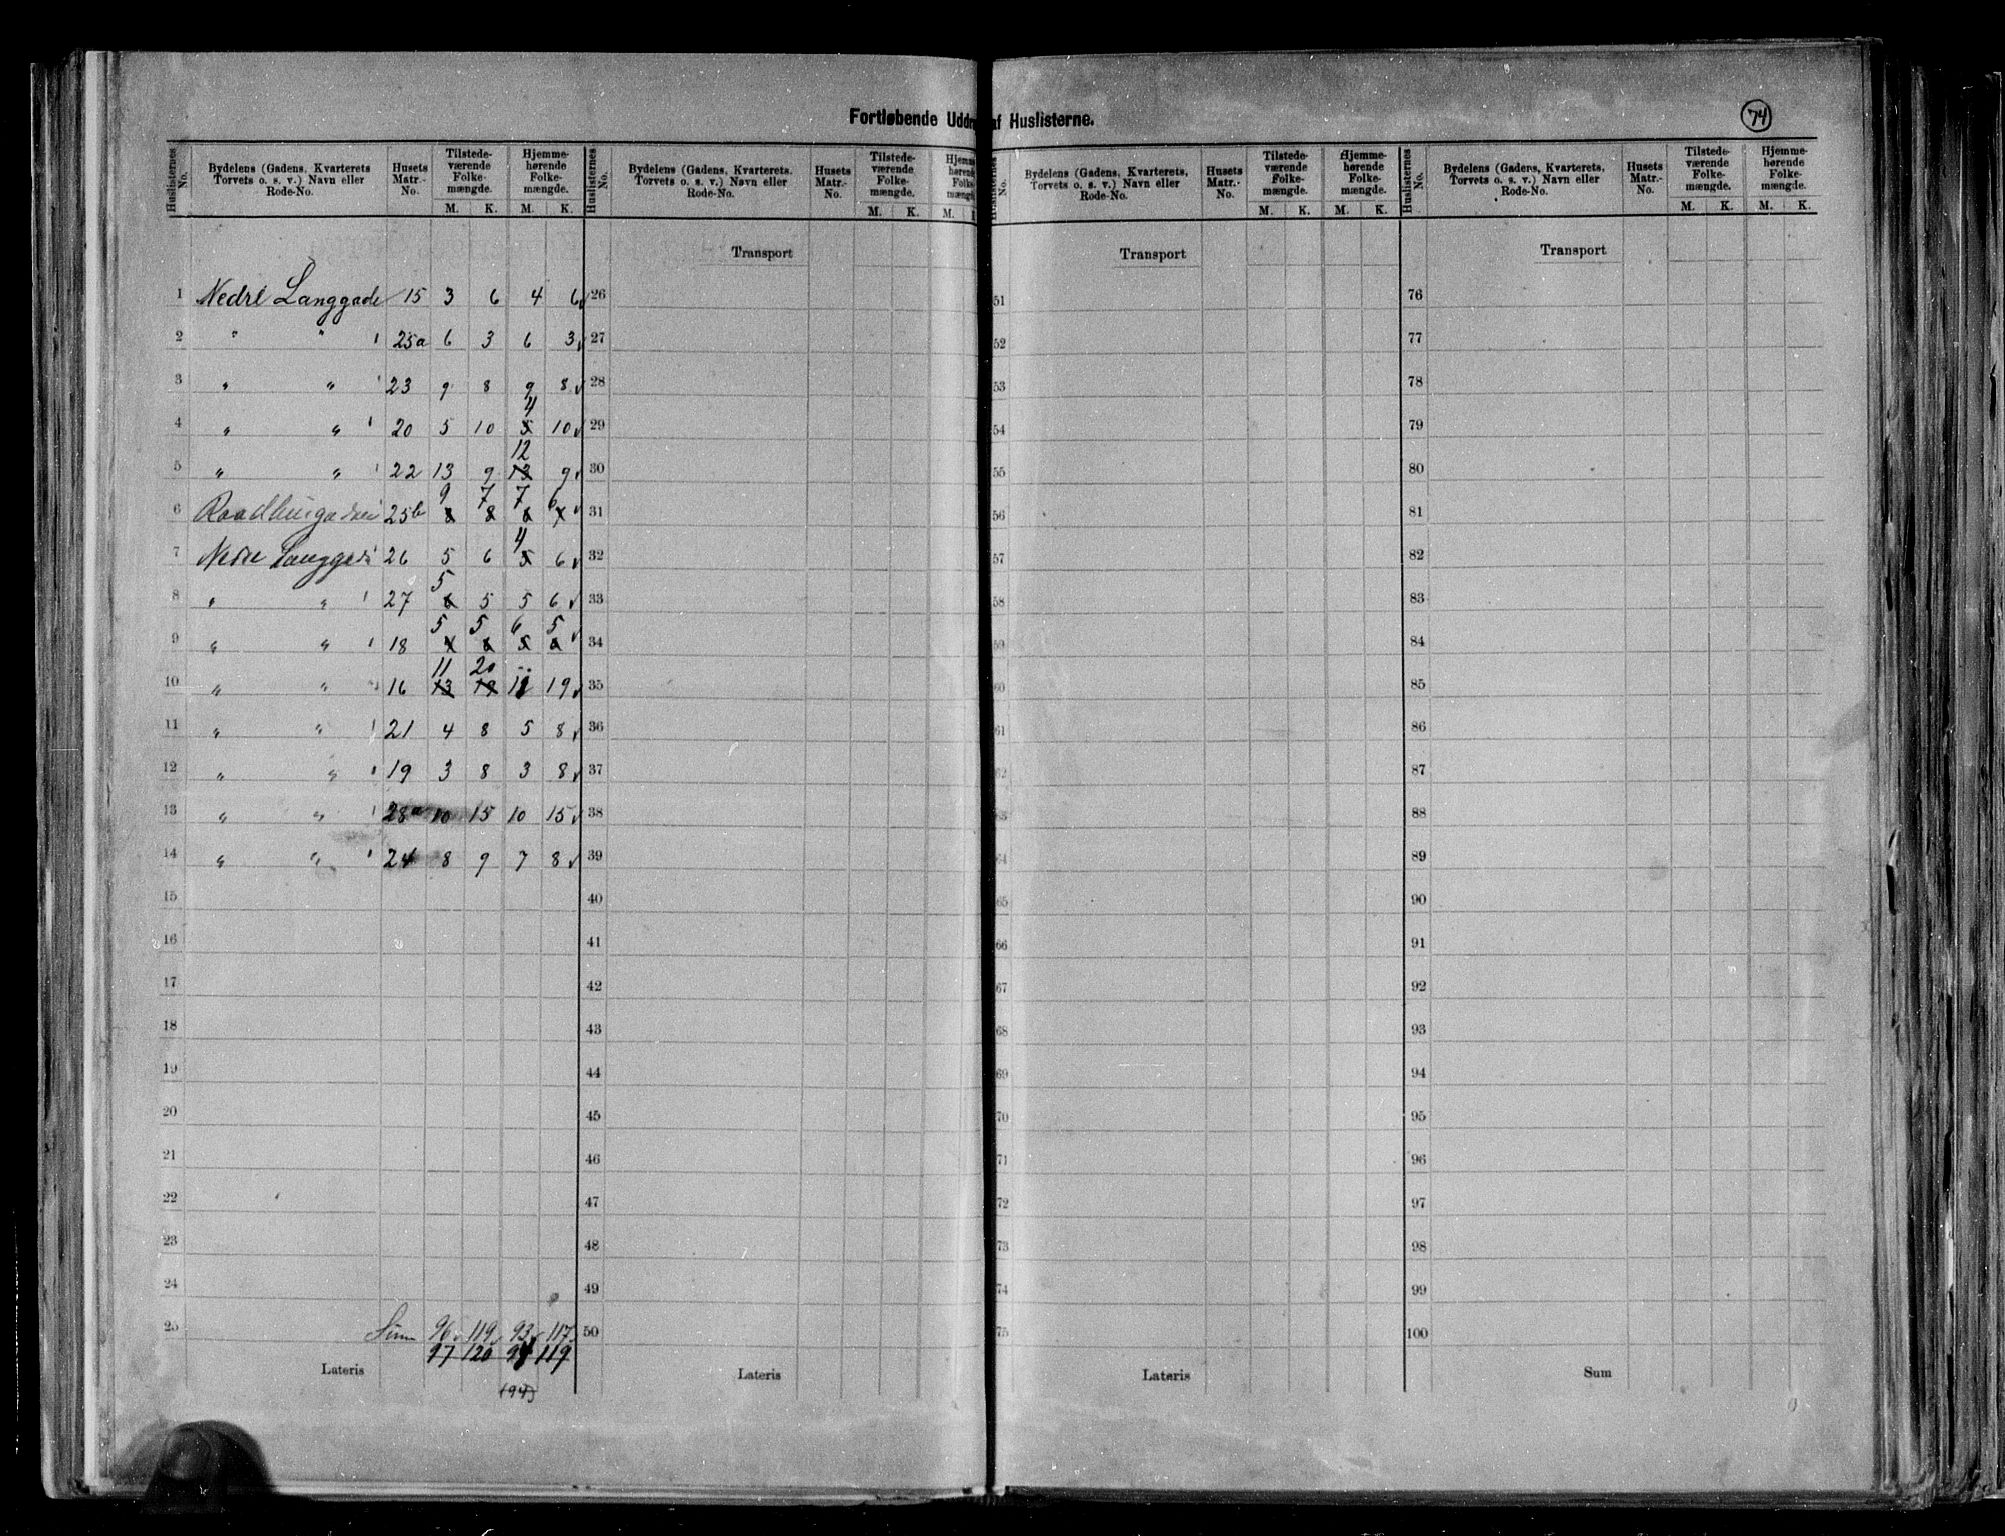 Fortløbende Uddr af Huslisterne.
74
Huslisternes No. Bydelens (Gadens, Kvarterets Torvets o. s. v.) Navn eller Rode-No. Husets Matr.-No. Tilstedeværende Folkemængde. M. K. Hjemmehørende Folkemængde. M. K.
Huslisternes No. Bydelens (Gadens, Kvarterets, Torvets o. s. v.) Navn eller Rode-No. Husets Matr.-No. Tilstedeværende Folkemængde. M. K. Hjemm hørend Folke mængde M.
Huslisternes No. Bydelens (Gadens, Kvarterets, Torvets o. s. v.) Navn eller Rode-No. Husets Matr.-No. Tilstedeværende Folkemængde. M. K. Hjemmehørende Folkemængde. M. K.
Huslisternes No. Bydelens (Gadens, Kvarterets, Torvets o. s. v.) Navn eller Rode-No. Husets Matr.-No. Tilstedeværende Folkemængde. M. K. Hjemmehørende Folkemængde. M. K.
Transport Transport Transport
1 Nedre Langgade 15 3 6 4 6 26 51 76
2 " " 25a 6 3 6 3 27 52 77
3 " " 23 9 8 9 8 28 53 78
4
4 " " 20 5 10 5 10 29 54 79
12
5 " " 22 13 9 13 9 30 55 80
9 7 7 6
6 25b 8 8 6 7 31 56 81
4
7 Nedre Langgade 26 5 6 5 6 32 57 82
5
8 " " 27 6 5 5 6 33 58 83
5 5 6 5
9 " " 18 4 6 5 6 34 59 84
11 20
10 " " 16 13 19 11 19 35 60 85
11 " " 21 4 8 5 8 36 61 86
12 " " 19 3 8 3 8 37 62 87
13 " " 28a 10 15 10 15 38 63 88
14 " " 24 8 9 7 8 39 64 89
15 40 65 90
16 41 66 91
17 42 67 92
18 43 68 93
19 44 69 94
20 45 70 95
21 46 71 96
22 47 72 97
23 48 73 98
24 49 74 99
25 Sum 96 119 93 117 50 75 100
97 120 94 119
Lateris Lateris Lateris Sum
(94)